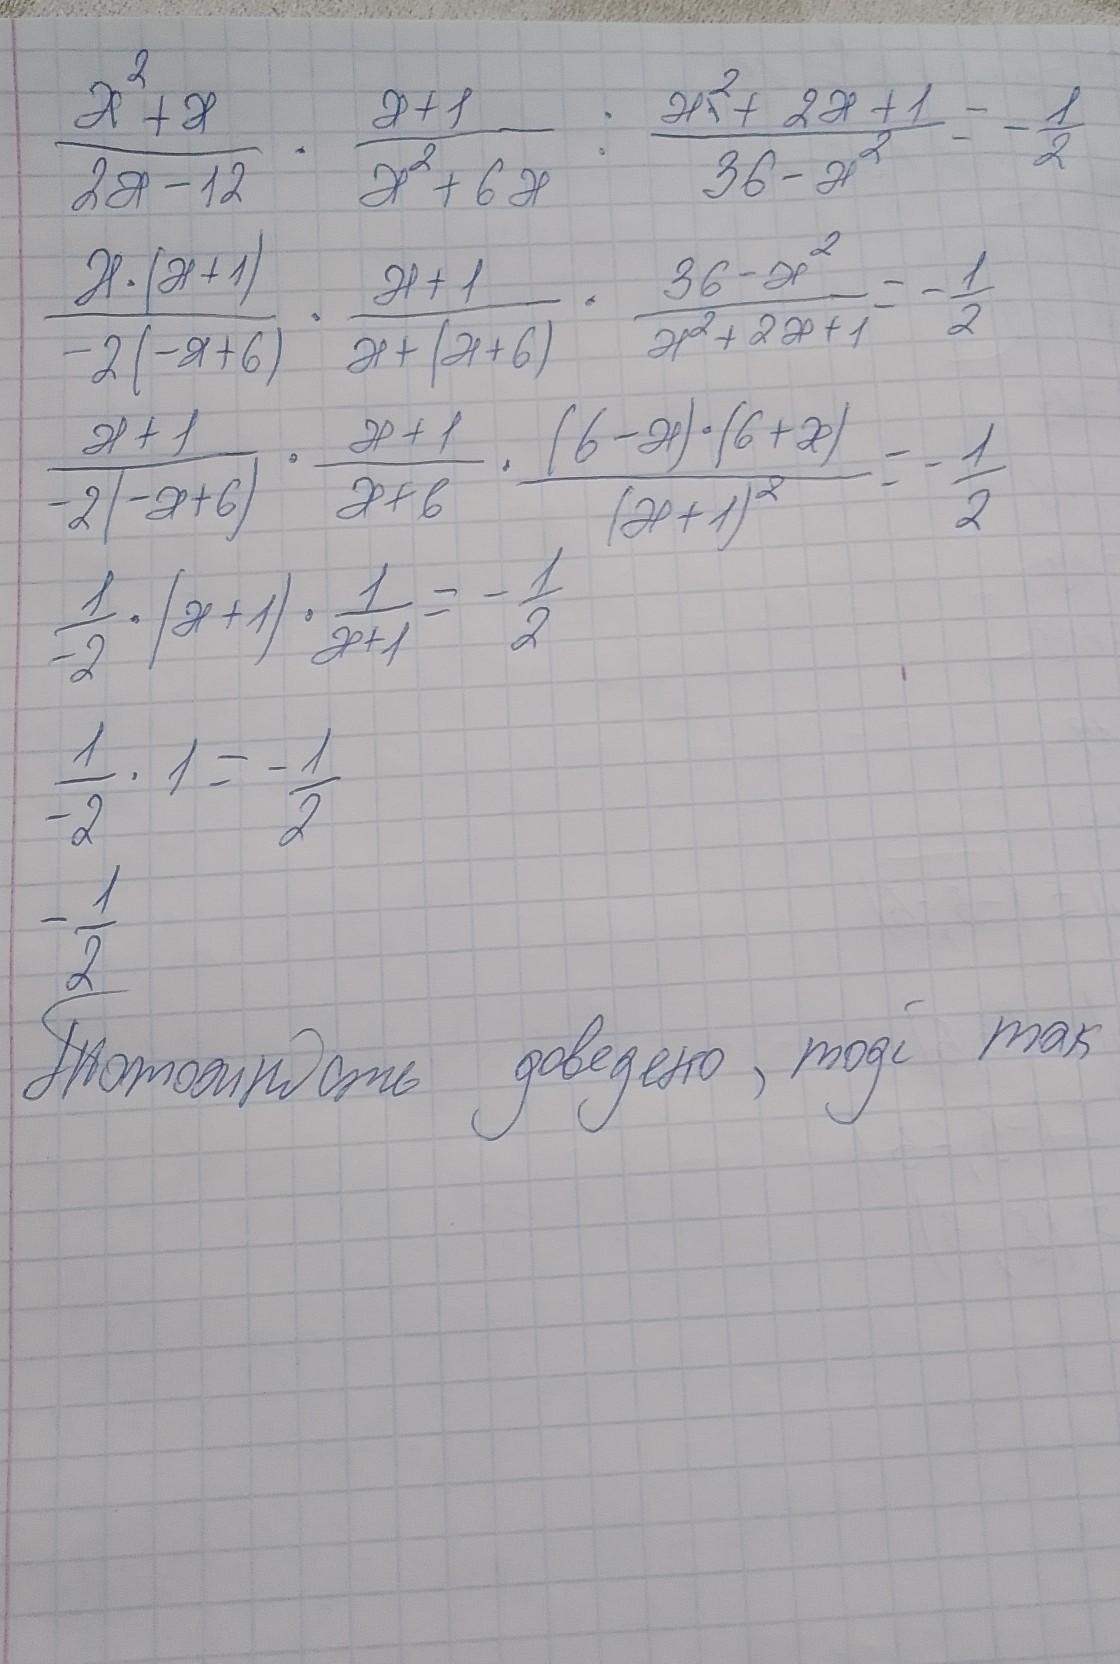 (x²+x)/(2x-12) · (x+1)/(x²+6x) : (x²+2x+1)/(36-x²) = -1/2
(x·(x+1))/(-2(-x+6)) · (x+1)/(x+(x+6)) · (36-x²)/(x²+2x+1) = -1/2
(x+1)/(-2(-x+6)) · (x+1)/(x+6) · ((6-x)·(6+x))/((x+1)²) = -1/2
1/-2 · (x+1) · 1/(x+1) = -1/2
1/-2 · 1 = -1/2
-1/2
доведено, тоді так